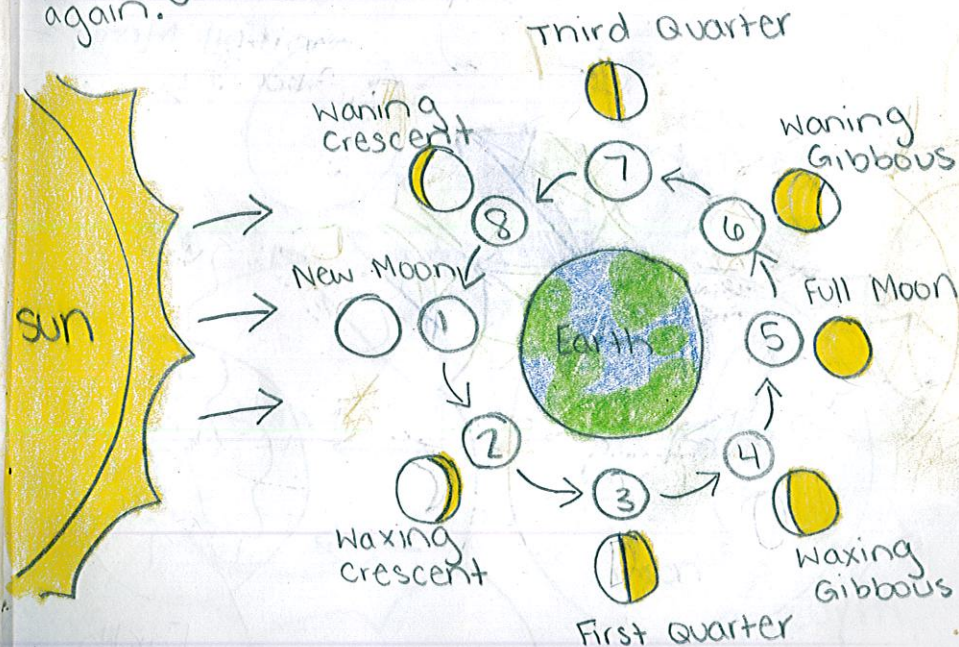 again.
Third Quarter
Waning
Crescent
Waning
Gibbous
7
8
6
New Moon
Full Moon
sun
1
Earth
5
2
4
3
Waxing
Crescent
Waxing
Gibbous
First Quarter